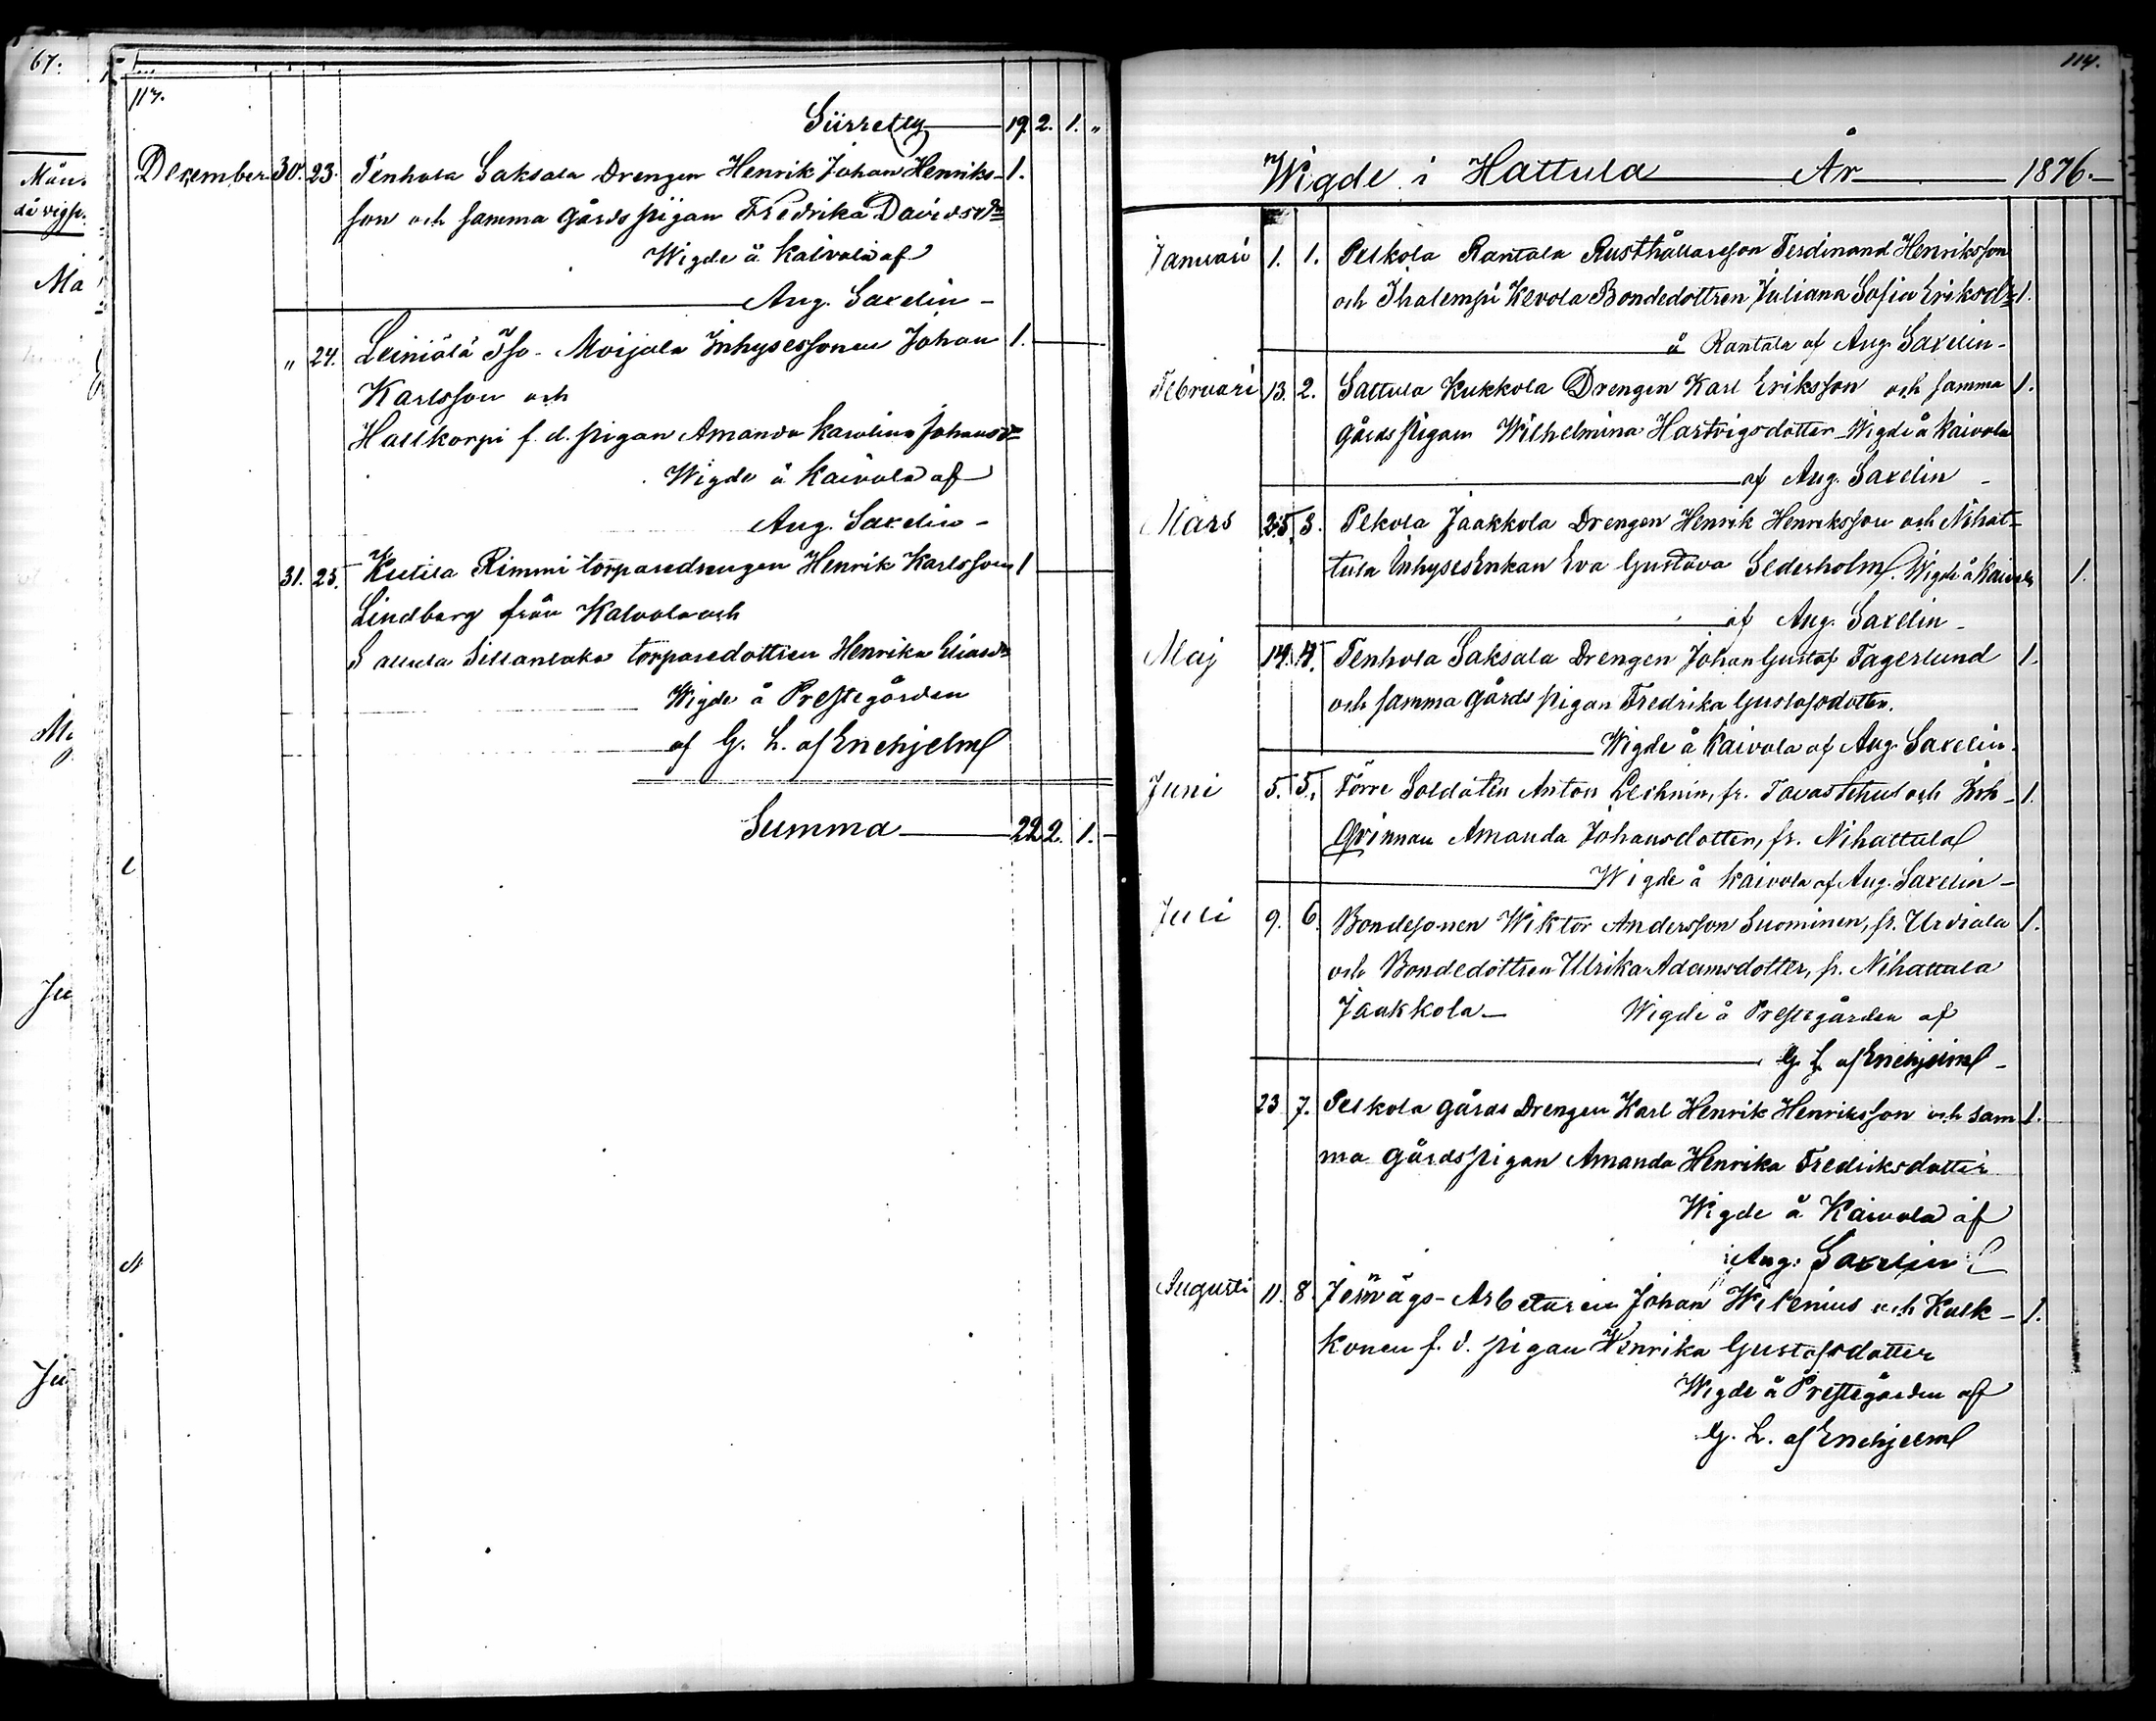 67.
Mån.
Ma
Ju
113.
Siirretty 19. 2. 1. "
December 30. 23. Tenhola Saksala Drengen Henrik Johan Henriks- 1.
son och samma gårds pigan Fredrika Davidsdr
Wigde å Kaivola af
Aug. Saxelin -
" 24. Leiniälä Iso-Moijala Inhysessonen Johan 1.
Karlsson och
Hallkorpi f. d. pigan Amanda Karolina Johansdr
Wigde å Kaivola af
Aug. Saxelin -
31. 25. Kutila Rimmi torparedrengen Henrik Karlsson 1
Lindberg från Kalvola och
Sattula Sillanlaka torparedottren Henrika Eliasdr
Wigde å Prestegården
af G. L. af Enehjelm
Summa 22 2. 1. -
114.
Wigde i Hattula År 1876.
Januari 1. 1. Pelkola Rantala Rusthållaresson Ferdinand Henriksson
och Ihalempi Kevola Bondedottren Juliana Sofia Eriksdr 1.
å Rantala af Aug. Saxelin -
Februari 13. 2. Sattula Kukkola Drengen Karl Eriksson och samma 1.
gårds pigan Wilhelmina Hartvigsdotter Wigde å Kaivola
af Aug. Saxelin -
Mars 25. 3. Pekola Jaakkola Drengen Henrik Henriksson och Nihat-
tula InhysesEnkan Eva Gustava Sederholm. Wigde å Kaivola 1.
af Aug. Saxelin -
Maj 14. 4. Tenhola Saksala Drengen Johan Gustaf Fagerlund 1.
och samma gårds pigan Fredrika Gustafsdotter.
Wigde å Kaivola af Aug. Saxelin.
Juni 5. 5. Förre Soldaten Anton Lechnin, fr. Tavastehus och Inh- 1.
Qvinnan Amanda Johansdotter, fr. Nihattula
Wigde å Kaivola af Aug. Saxelin -
Juli 9. 6. Bondesonen Wiktor Andersson Suominen, fr. Urdiala 1.
och Bondedottren Ulrika Adamsdotter, fr. Nihattula
Jaakkola - Wigde å Prestegården af
G. L. af Enehjelm -
23 7. Pelkola gårds Drengen Karl Henrik Henriksson och sam 1.
ma gårdspigan Amanda Henrika Fredriksdotter
Wigde å Kaivola af
Aug. Saxelin
Augusti 11. 8. Jernvägs-Arbetaren Johan Wilenius och Kulk- 1.
konen f. d. pigan Henrika Gustafsdotter
Wigde å Prestegården af
G. L. af Enehjelm